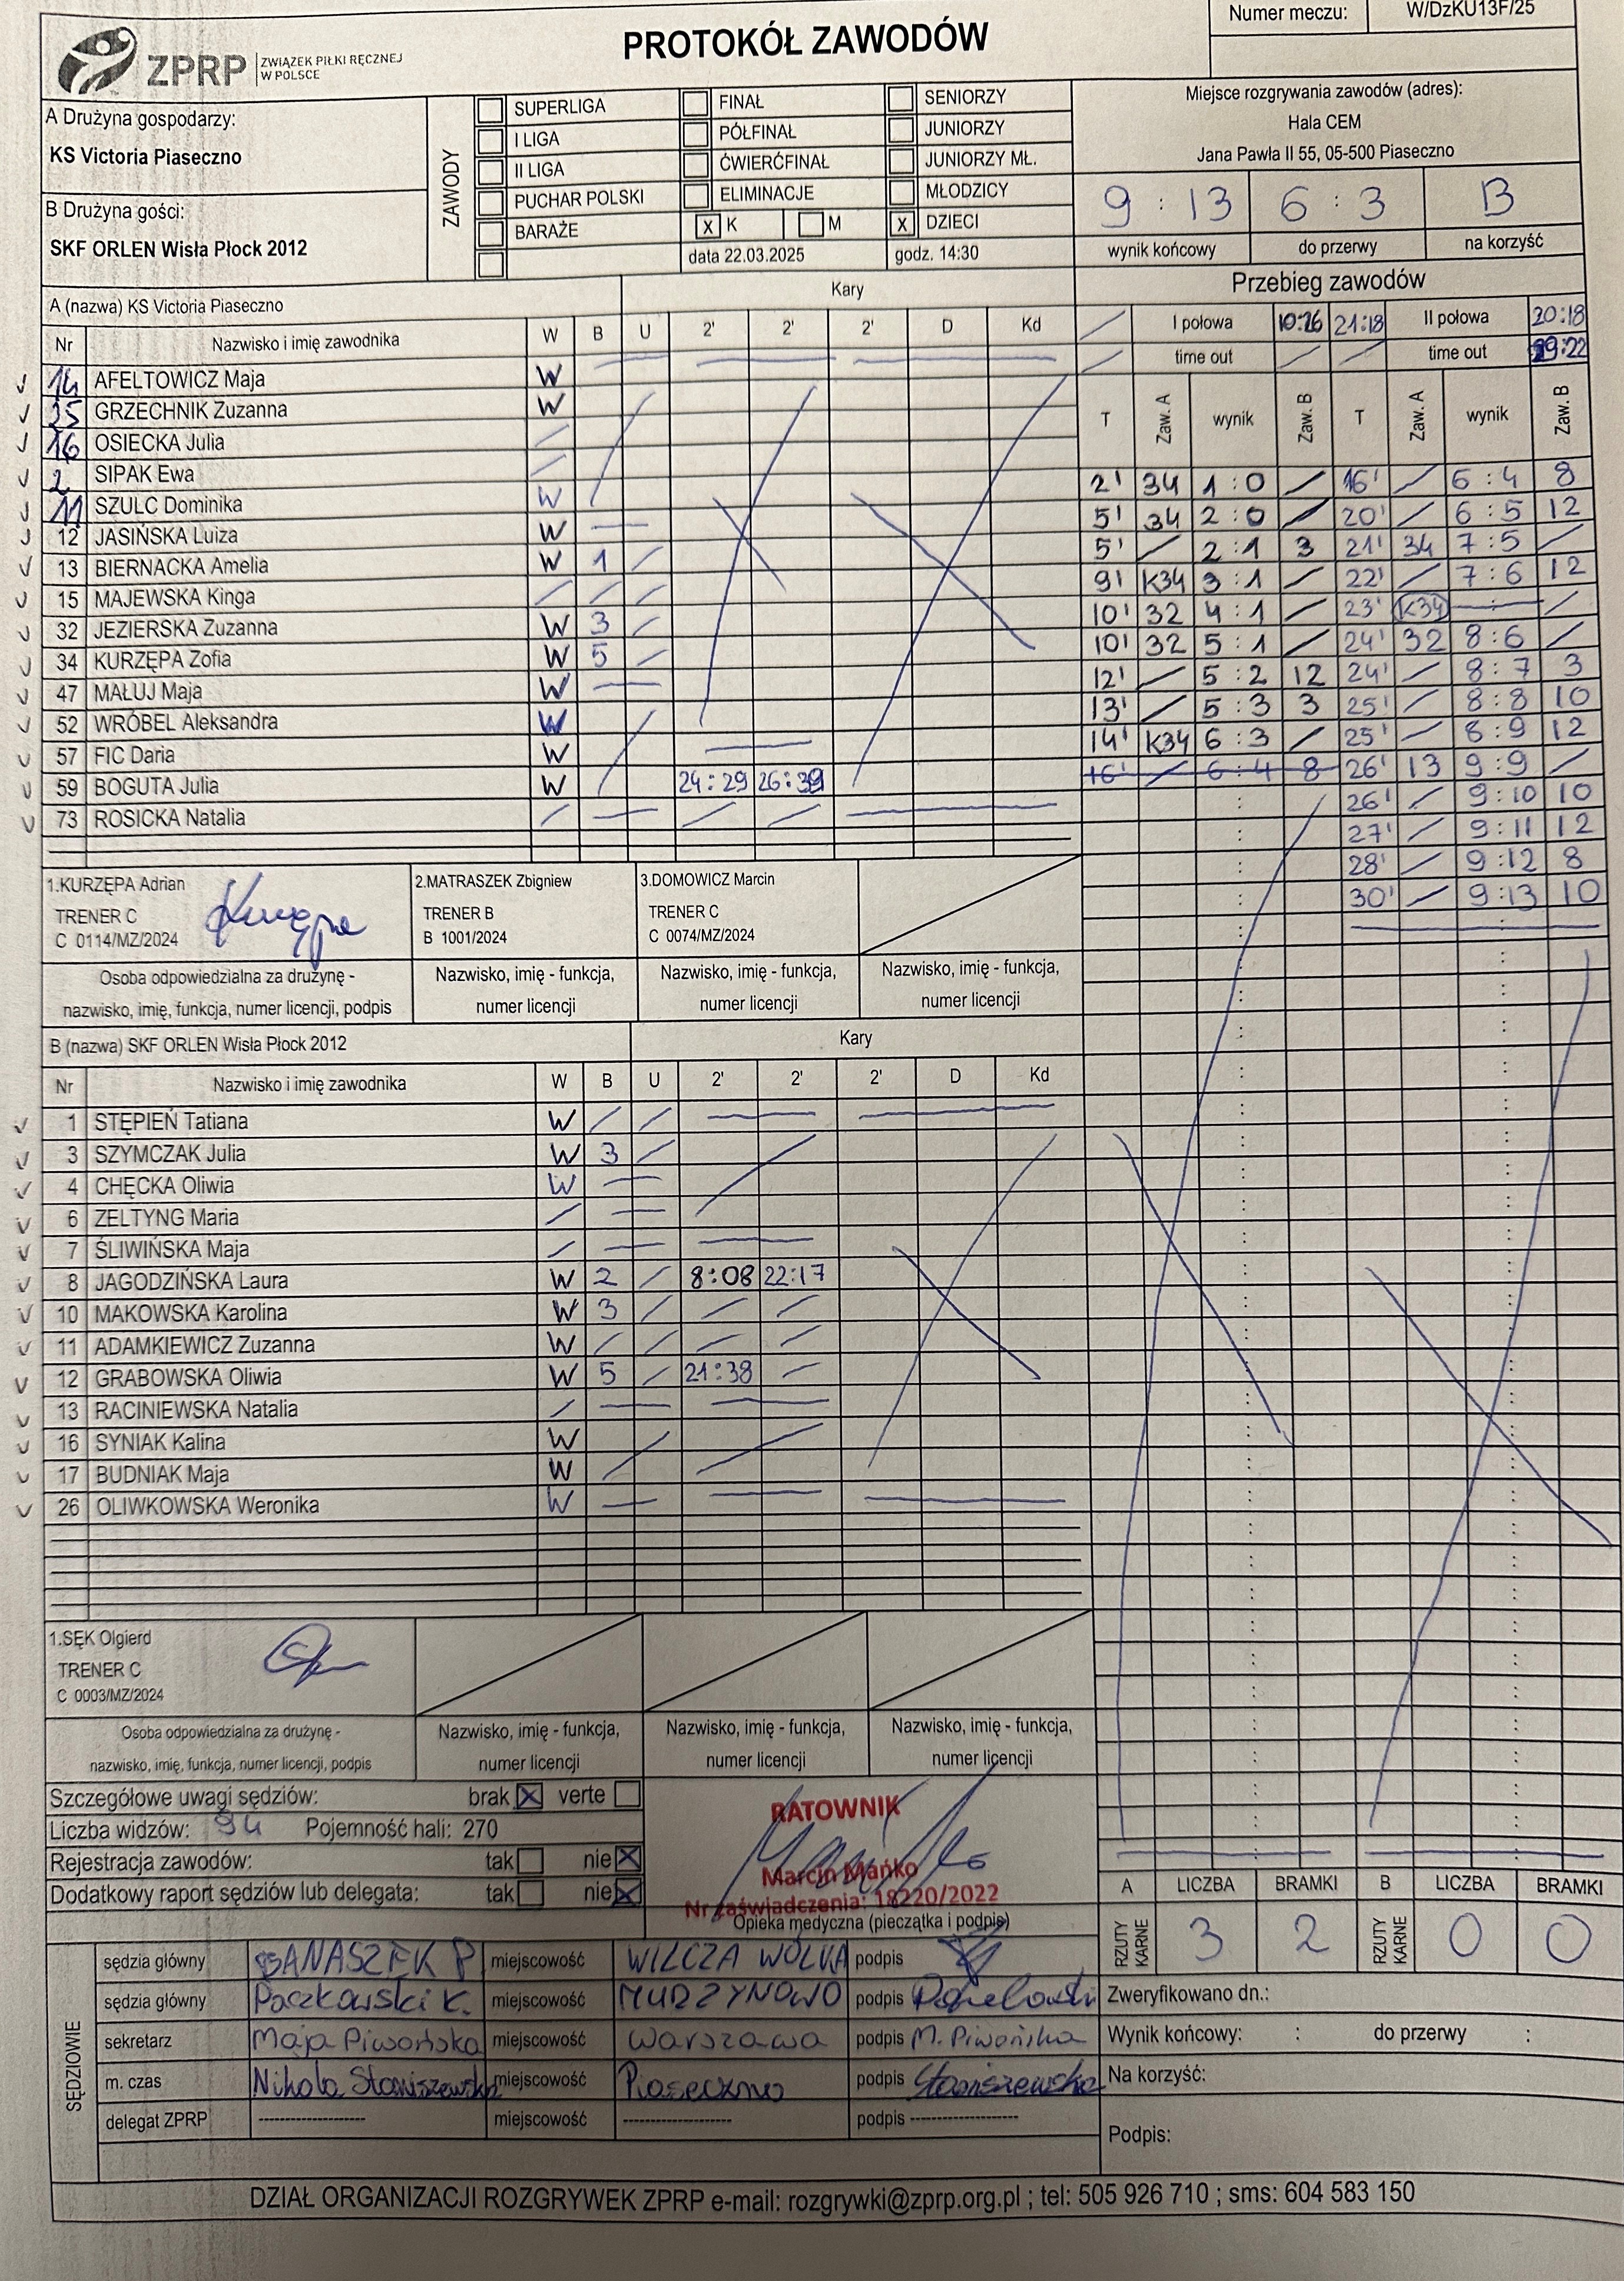 Numer meczu: W/DzKU13F/25
PROTOKÓŁ ZAWODÓW
ZPRP ZWIĄZEK PIŁKI RĘCZNEJ W POLSCE
A Drużyna gospodarzy:
KS Victoria Piaseczno
B Drużyna gości:
SKF ORLEN Wisła Płock 2012
ZAWODY
SUPERLIGA FINAŁ SENIORZY
I LIGA PÓŁFINAŁ JUNIORZY
II LIGA ĆWIERĆFINAŁ JUNIORZY MŁ.
PUCHAR POLSKI ELIMINACJE MŁODZICY
BARAŻE x K M x DZIECI
data 22.03.2025 godz. 14:30
Miejsce rozgrywania zawodów (adres):
Hala CEM
Jana Pawła II 55, 05-500 Piaseczno
9 : 13 6 : 3 B
wynik końcowy do przerwy na korzyść
A (nazwa) KS Victoria Piaseczno Kary
Nr Nazwisko i imię zawodnika W B U 2' 2' 2' D Kd
14 AFELTOWICZ Maja W
25 GRZECHNIK Zuzanna W
16 OSIECKA Julia
2 SIPAK Ewa
11 SZULC Dominika W
12 JASIŃSKA Luiza W
13 BIERNACKA Amelia W 1
15 MAJEWSKA Kinga
32 JEZIERSKA Zuzanna W 3
34 KURZĘPA Zofia W 5
47 MAŁUJ Maja W
52 WRÓBEL Aleksandra W
57 FIC Daria W
59 BOGUTA Julia W 24:29 26:39
73 ROSICKA Natalia
1.KURZĘPA Adrian
TRENER C
C 0114/MZ/2024
2.MATRASZEK Zbigniew
TRENER B
B 1001/2024
3.DOMOWICZ Marcin
TRENER C
C 0074/MZ/2024
Osoba odpowiedzialna za drużynę - nazwisko, imię, funkcja, numer licencji, podpis
Nazwisko, imię - funkcja, numer licencji
Nazwisko, imię - funkcja, numer licencji
Nazwisko, imię - funkcja, numer licencji
Przebieg zawodów
I połowa 10:26 21:18 II połowa 20:18
time out time out 29:22
T Zaw. A wynik Zaw. B T Zaw. A wynik Zaw. B
2' 34 1 : 0 / 16' / 6 : 4 8
5' 34 2 : 0 / 20' / 6 : 5 12
5' / 2 : 1 3 21' 34 7 : 5 /
9' K34 3 : 1 / 22' / 7 : 6 12
10' 32 4 : 1 / 23' K34 — : — /
10' 32 5 : 1 / 24' 32 8 : 6 /
12' / 5 : 2 12 24' / 8 : 7 3
13' / 5 : 3 3 25' / 8 : 8 10
14' K34 6 : 3 / 25' / 8 : 9 12
16' / 6 : 4 8 26' 13 9 : 9 /
26' / 9 : 10 10
27' / 9 : 11 12
28' / 9 : 12 8
30' / 9 : 13 10
B (nazwa) SKF ORLEN Wisła Płock 2012 Kary
Nr Nazwisko i imię zawodnika W B U 2' 2' 2' D Kd
1 STĘPIEŃ Tatiana W
3 SZYMCZAK Julia W 3
4 CHĘCKA Oliwia W
6 ZELTYNG Maria
7 ŚLIWIŃSKA Maja
8 JAGODZIŃSKA Laura W 2 8:08 22:17
10 MAKOWSKA Karolina W 3
11 ADAMKIEWICZ Zuzanna W
12 GRABOWSKA Oliwia W 5 21:38
13 RACINIEWSKA Natalia
16 SYNIAK Kalina W
17 BUDNIAK Maja W
26 OLIWKOWSKA Weronika W
1.SĘK Olgierd
TRENER C
C 0003/MZ/2024
Osoba odpowiedzialna za drużynę - nazwisko, imię, funkcja, numer licencji, podpis
Nazwisko, imię - funkcja, numer licencji
Nazwisko, imię - funkcja, numer licencji
Nazwisko, imię - funkcja, numer licencji
Szczegółowe uwagi sędziów: brak x verte
Liczba widzów: 94 Pojemność hali: 270
Rejestracja zawodów: tak nie x
Dodatkowy raport sędziów lub delegata: tak nie x
RATOWNIK
Marcin Mańko
Nr zaświadczenia: 18220/2022
Opieka medyczna (pieczątka i podpis)
A LICZBA BRAMKI B LICZBA BRAMKI
RZUTY KARNE 3 2 RZUTY KARNE 0 0
SĘDZIOWIE
sędzia główny BANASZEK P miejscowość WILCZA WÓLKA podpis
sędzia główny Paczkowski K. miejscowość MURZYNOWO podpis
sekretarz Maja Piwońska miejscowość Warszawa podpis M. Piwońska
m. czas Nikola Staniszewska miejscowość Piaseczno podpis Staniszewska
delegat ZPRP -------------- miejscowość -------------- podpis --------------
Zweryfikowano dn.:
Wynik końcowy: : do przerwy :
Na korzyść:
Podpis:
DZIAŁ ORGANIZACJI ROZGRYWEK ZPRP e-mail: rozgrywki@zprp.org.pl ; tel: 505 926 710 ; sms: 604 583 150